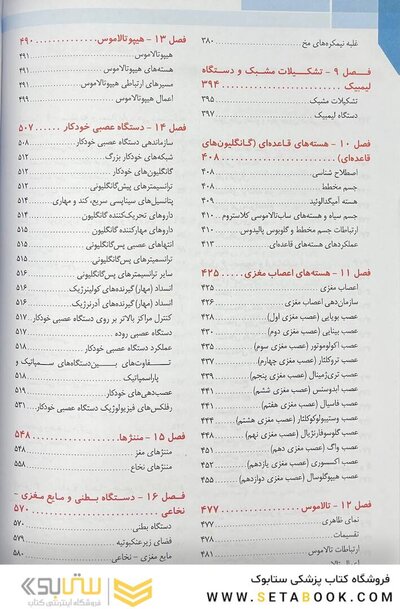 غلبه نیمکره‌های مخ ۳۸۰
فصل ۹ - تشکیلات مشبک و دستگاه
لیمبیک ۳۹۴
تشکیلات مشبک ۳۹۵
دستگاه لیمبیک ۳۹۷
فصل ۱۰ - هسته‌های قاعده‌ای (گانگلیون‌های
قاعده‌ای) ۴۰۸
اصطلاح شناسی ۴۰۸
جسم مخطط ۴۰۸
هسته آمیگدالوئید ۴۰۹
جسم سیاه و هسته‌های ساب‌تالاموسی کلاستروم ۴۱۰
ارتباطات جسم مخطط و گلوبوس پالیدوس ۴۱۰
عملکردهای هسته‌های قاعده‌ای ۴۱۳
فصل ۱۱ - هسته‌های اعصاب مغزی ۴۲۵
اعصاب مغزی ۴۲۵
سازمان‌دهی اعصاب مغزی ۴۲۶
عصب بویایی (عصب مغزی اول) ۴۲۸
عصب بینایی (عصب مغزی دوم) ۴۳۰
عصب اکولوموتور (عصب مغزی سوم) ۴۳۵
عصب تروکلئار (عصب مغزی چهارم) ۴۳۷
عصب تری‌ژمینال (عصب مغزی پنجم) ۴۳۹
عصب ابدوسنس (عصب مغزی ششم) ۴۴۱
عصب فاسیال (عصب مغزی هفتم) ۴۴۱
عصب وستیبولوکوکلئار (عصب مغزی هشتم) ۴۴۴
عصب گلوسوفارنژیال (عصب مغزی نهم) ۴۴۸
عصب واگ (عصب مغزی دهم) ۴۵۱
عصب اکسسوری (عصب مغزی یازدهم) ۴۵۲
عصب هیپوگلوسال (عصب مغزی دوازدهم) ۴۵۵
فصل ۱۲ - تالاموس ۴۷۷
نمای ظاهری ۴۷۷
تقسیمات ۴۷۸
ارتباطات تالاموس ۴۸۱
فصل ۱۳ - هیپوتالاموس ۴۹۰
هیپوتالاموس ۴۹۱
هسته‌های هیپوتالاموس ۴۹۱
مسیرهای ارتباطی هیپوتالاموس ۴۹۱
اعمال هیپوتالاموس ۴۹۹
فصل ۱۴ - دستگاه عصبی خودکار ۵۰۷
سازماندهی دستگاه عصبی خودکار ۵۰۸
شبکه‌های خودکار بزرگ ۵۱۲
گانگلیون‌های خودکار ۵۱۲
ترانسمیترهای پیش‌گانگلیونی ۵۱۴
پتانسیل‌های سیناپسی سریع، کند و مهاری ۵۱۴
داروهای تحریک‌کننده گانگلیون ۵۱۵
داروهای مهارکننده گانگلیون ۵۱۵
انتهاهای عصبی پس‌گانگلیونی ۵۱۵
ترانسمیترهای پس‌گانگلیونی ۵۱۵
سایر ترانسمیترهای پس‌گانگلیونی ۵۱۶
انسداد (مهار) گیرنده‌های کولینرژیک ۵۱۶
انسداد (مهار) گیرنده‌های آدرنرژیک ۵۱۶
کنترل مراکز بالاتر بر روی دستگاه خودکار ۵۱۷
دستگاه عصبی روده ۵۱۷
عملکرد دستگاه عصبی خودکار ۵۱۸
تفاوت‌های بین‌دستگاه‌های سمپاتیک و
پاراسمپاتیک ۵۱۸
عصب‌دهی‌های خودکار ۵۱۹
رفلکس‌های فیزیولوژیک دستگاه عصبی خودکار ۵۳۱
فصل ۱۵ - مننژها ۵۴۸
مننژهای مغز ۵۴۸
مننژهای نخاع ۵۵۸
فصل ۱۶ - دستگاه بطنی و مایع مغزی -
نخاعی ۵۷۰
دستگاه بطنی ۵۷۰
فضای زیرعنکبوتیه ۵۷۹
مایع مغزی - نخاعی ۵۸۰
ستابوک
فروشگاه اینترنتی کتاب
فروشگاه کتاب پزشکی ستابوک
WWW.SETABOOK.COM